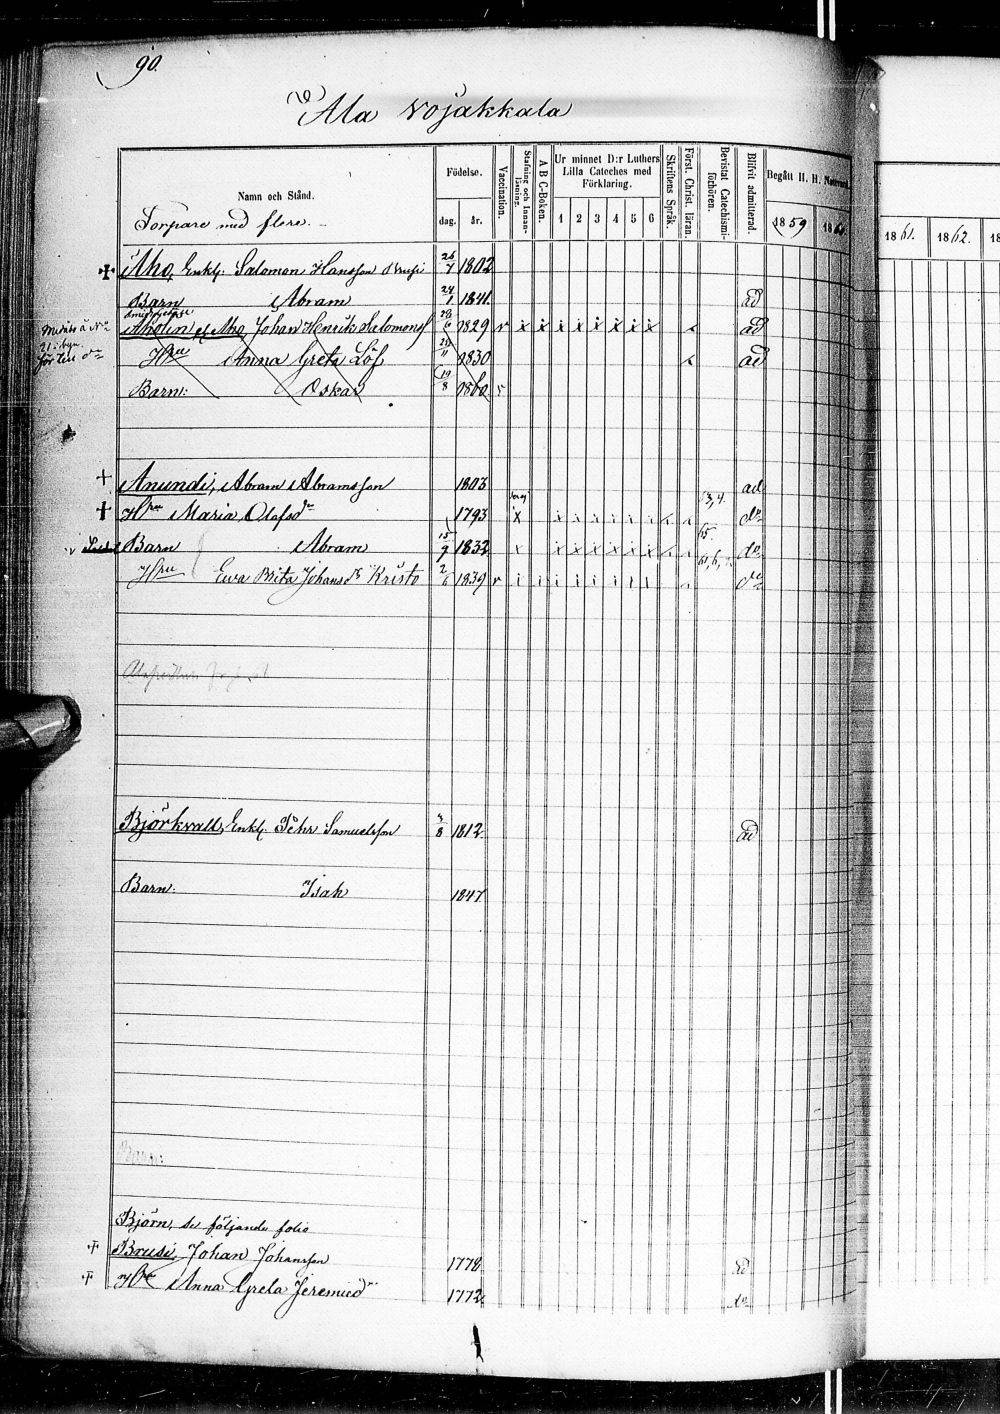 90.
Ala Vojakkala
Namn och Stånd. Födelse. Vaccination. Stafning och Innanläsning. A B C-Boken. Ur minnet D:r Luthers Lilla Cateches med Förklaring. Skriftens Språk. Först. Christ. läran. Bevistat Catechismiförhören. Blifvit admitterad. Begått H. H. Nattvard.
Torpare med flere. dag. år. 1 2 3 4 5 6 1859 1861. 1862.
+ Aho, Enkl. Salomon Hansson 26/7 1802
Barn Abram 24/1 1841 ad
Aholin, ef Aho, Johan Henrik Salomonss 1829 v x x x x x x x x ad
Hru Anna Greta Löf 1830 ad
Barn: Oskar 19/8 1860
+ Anundi, Abram Abramsson 1803 ad
+ Hru Maria Olofsdr 1793 x x x x x x x do
Barn Abram 15/9 1832 x x x x x x x do
Hru Ewa Brita Johansdr Kristo 1839 v do
Björkvall, Enkl. Pehr Samuelsson 1812 ad
Barn: Isak 1847
Barn:
Björn, se följande folio
+ Brusi, Johan Johansson 1778 ad
+ Hru Anna Greta Jeremiedr 1772 do